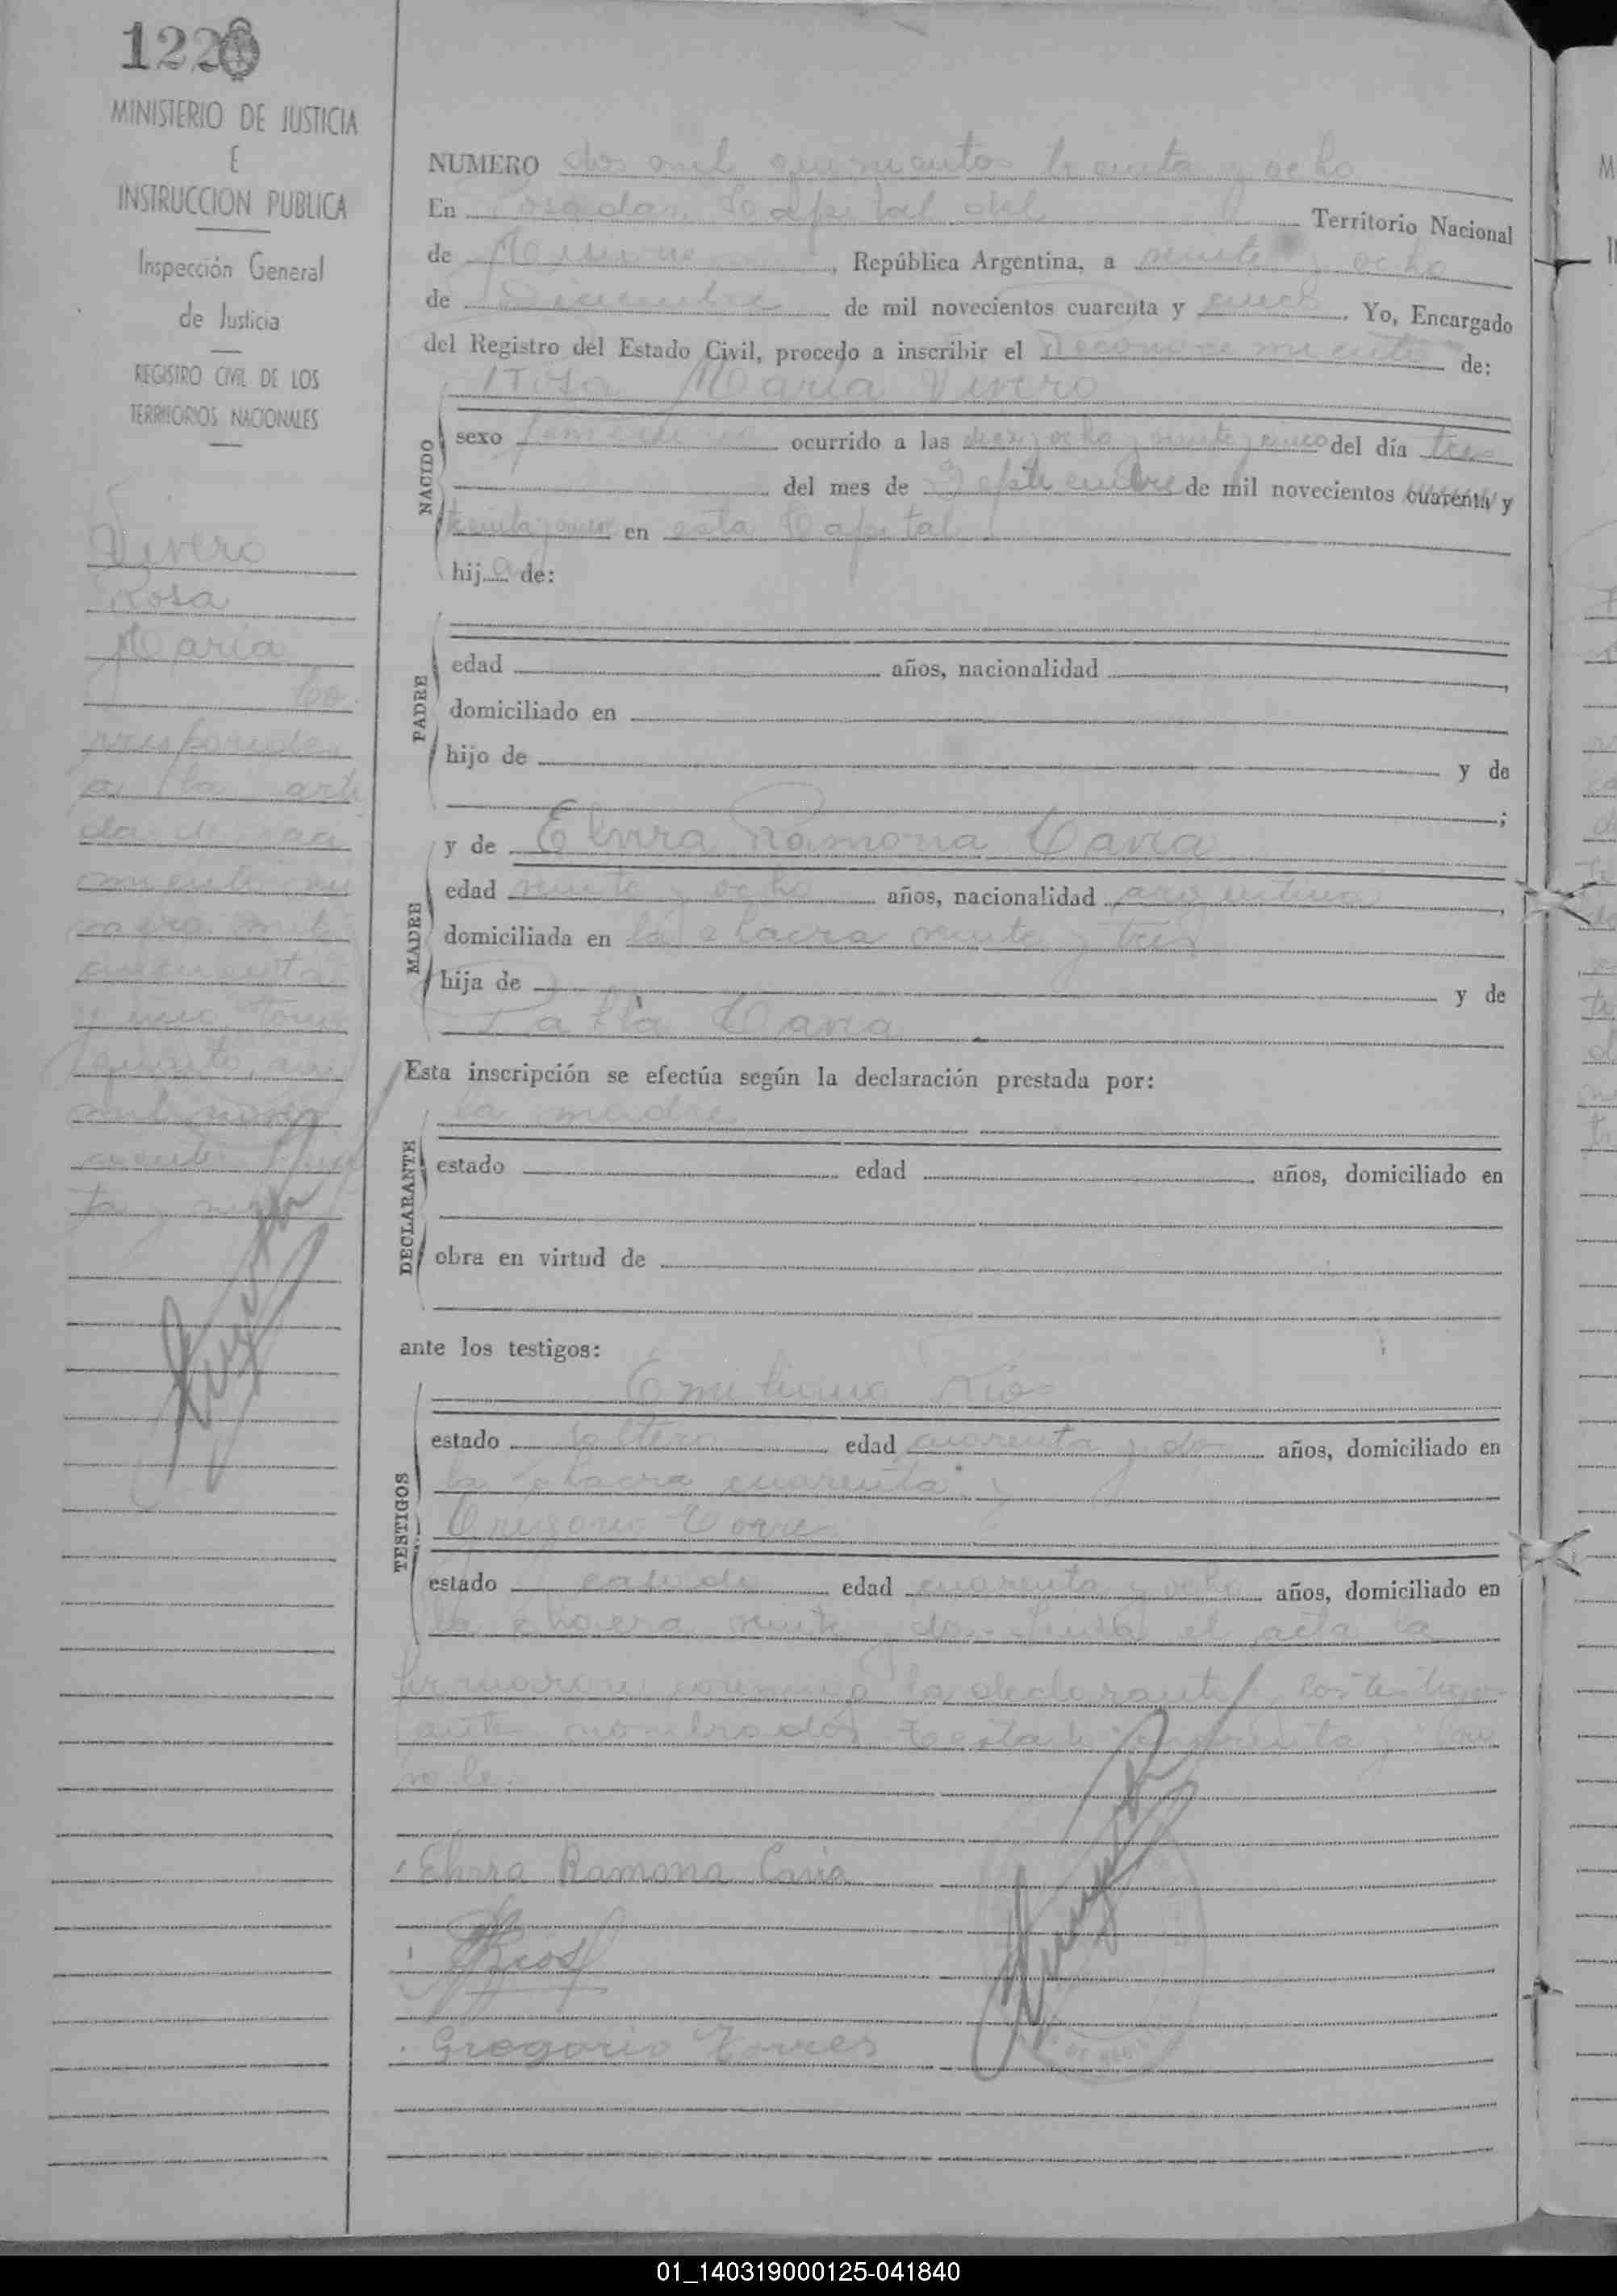 122
MINISTERIO DE JUSTICIA
E
INSTRUCCION PUBLICA
Inspección General
de Justicia
REGISTRO CIVIL DE LOS
TERRITORIOS NACIONALES
Vivero
Rosa
Maria
Co
rresponde
a la arti
da de naci
miento nu
mero mil
cincuenta
y uno tomo
quinto, año
mil nove
ciento trein
ta y
NUMERO dos mil quinientos treinta y ocho
En Posadas Capital del Territorio Nacional
de Misiones, República Argentina, a veinte y ocho
de Diciembre de mil novecientos cuarenta y cinco. Yo, Encargado
del Registro del Estado Civil, procedo a inscribir el Reconocimiento de:
Rosa Maria Vivero
NACIDO
sexo femenino ocurrido a las diez y ocho y veinte y cinco del día tres
del mes de Septiembre de mil novecientos cuarenta y
treinta y en esta Capital
hija de:
PADRE
edad años, nacionalidad ,
domiciliado en
hijo de y de
;
MADRE
y de Elvira Ramona Cavia
edad veinte y ocho años, nacionalidad argentina ,
domiciliada en la chacra veinte y tres
hija de y de
Cavia
Esta inscripción se efectúa según la declaración prestada por:
DECLARANTE
la madre
estado edad años, domiciliado en
obra en virtud de
ante los testigos:
TESTIGOS
Emiliano Rios
estado soltero edad cuarenta y dos años, domiciliado en
la chacra cuarenta y
Gregorio Torres
estado casado edad cuarenta y ocho años, domiciliado en
la chacra veinte y dos. Leida el acta la
firmaron conmigo la declarante y los testigos
ante nombrados Testado: cuarenta y: no
vale.
Elvira Ramona Cavia
Rios
Gregorio Torres
01_140319000125-041840